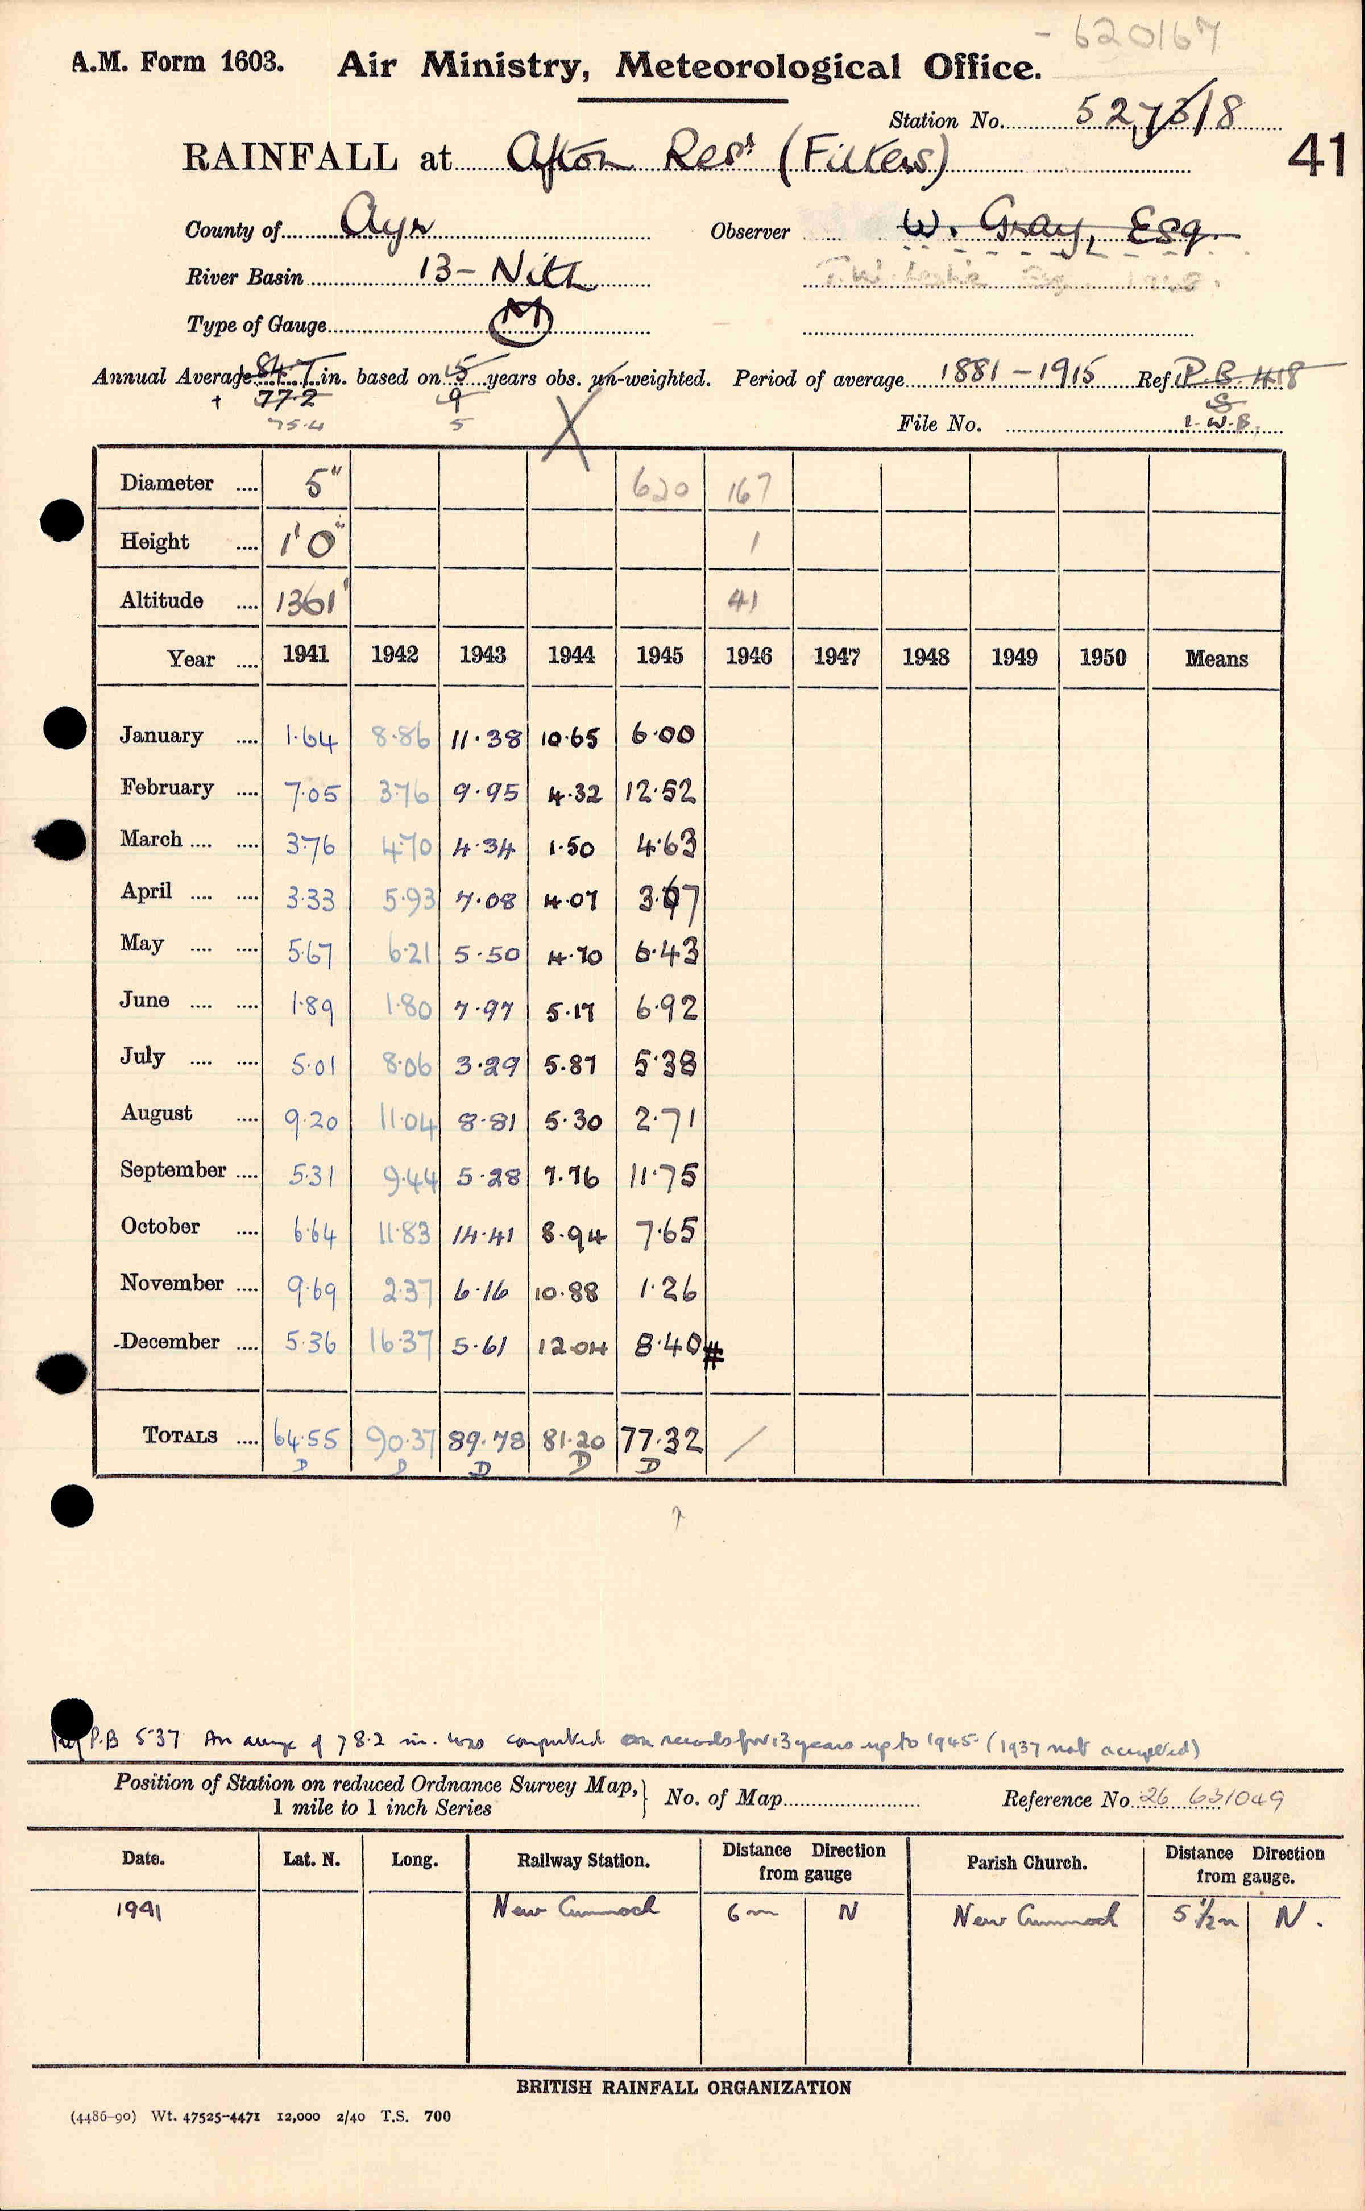 - 620167
A.M. Form 1603. Air Ministry, Meteorological Office.
Station No. 5273/8
RAINFALL at Afton Resr (Filters) 41
County of Ayr Observer W. Gray, Esq.
River Basin 13 - Nith
Type of Gauge M
Annual Average 84.7 in. based on 5 years obs. un-weighted. Period of average 1881 - 1915 Ref. P.B. 418
+ 77.2 9 S
75.4 5 File No. I.W.B.
Diameter .... 5" 620 167
Height .... 1' 0" 1
Altitude .... 1361' 41
Year .... 1941 1942 1943 1944 1945 1946 1947 1948 1949 1950 Means
January .... 1.64 8.86 11.38 10.65 6.00
February .... 7.05 3.76 9.95 4.32 12.52
March .... .... 3.76 4.70 4.34 1.50 4.63
April .... .... 3.33 5.93 7.08 4.07 3.67
May .... .... 5.67 6.21 5.50 4.70 6.43
June .... .... 1.89 1.80 7.97 5.17 6.92
July .... .... 5.01 8.06 3.29 5.87 5.38
August .... 9.20 11.04 8.81 5.30 2.71
September .... 5.31 9.44 5.28 7.76 11.75
October .... 6.64 11.83 14.41 8.94 7.65
November .... 9.69 2.37 6.16 10.88 1.26
December .... 5.36 16.37 5.61 12.04 8.40 #
TOTALS .... 64.55 90.37 89.78 81.20 77.32 /
D D D D D
?
Ref P.B 537 An average of 78.2 in. was computed on records for 13 years up to 1945 (1937 not accepted)
Position of Station on reduced Ordnance Survey Map, } No. of Map Reference No. 26 631049
1 mile to 1 inch Series
Date. Lat. N. Long. Railway Station. Distance Direction Parish Church. Distance Direction
from gauge from gauge.
1941 New Cumnock 6 m N New Cumnock 5 1/2 m N.
BRITISH RAINFALL ORGANIZATION
(4486-90) Wt. 47525-4471 12,000 2/40 T.S. 700